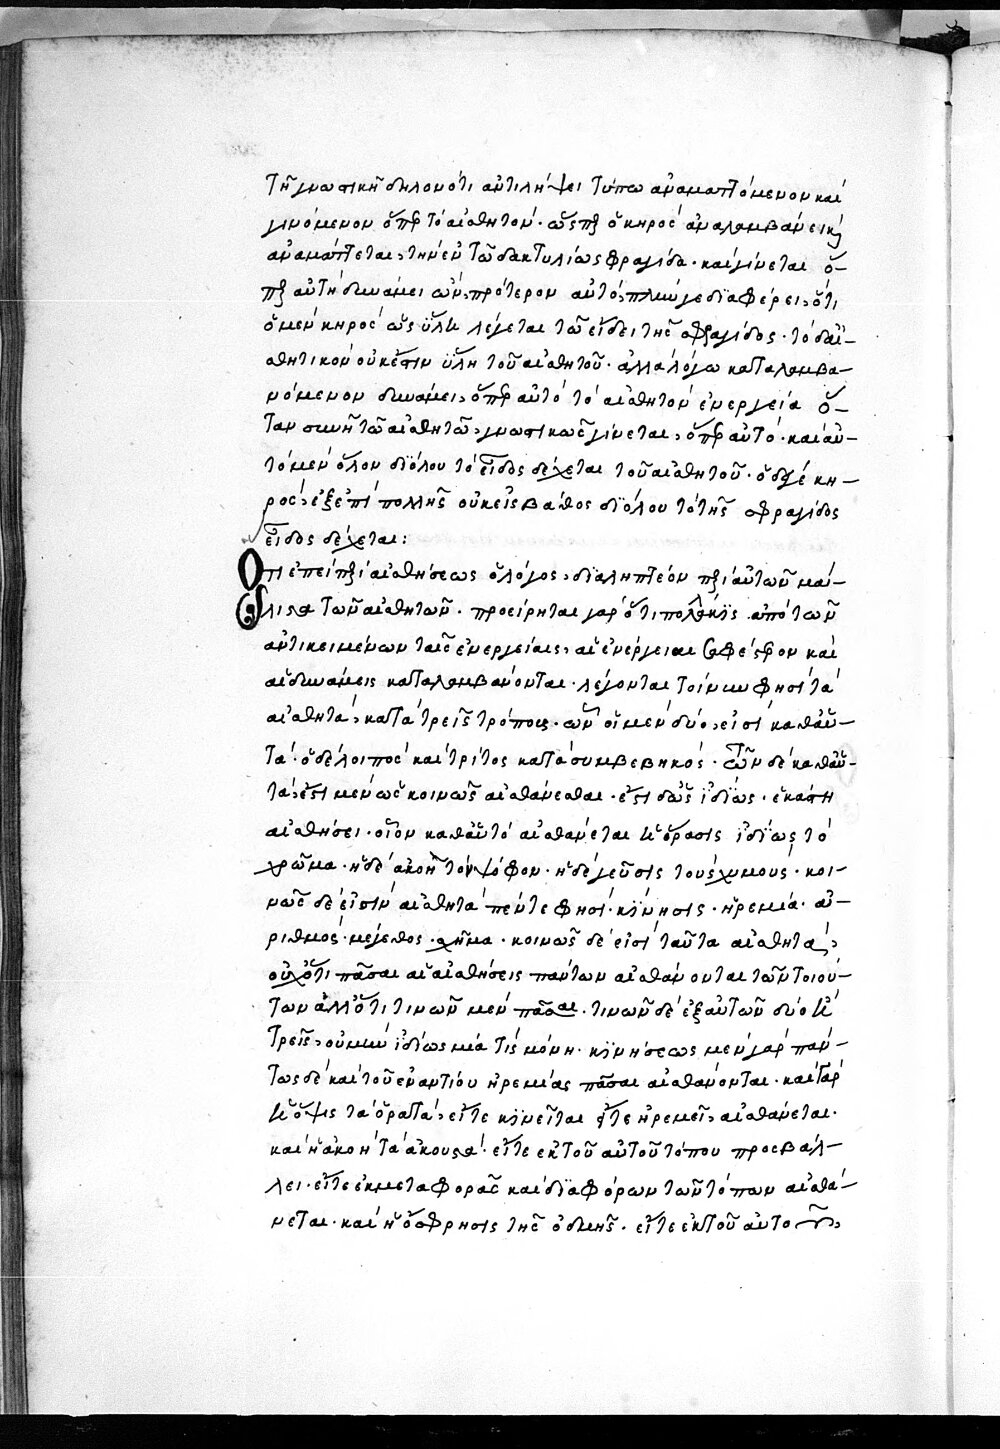 τῇ γνωστικῇ δηλονότι ἀντιλήψει τύπω ἀναματτόμενον καὶ
γινόμενον ὅπερ τὸ αἰσθητόν· ὥσπερ ὁ κηρὸς ἀναλαμβάνει κ
ἀναμάττεται, τὴν ἐν τῶ δακτυλίω σφραγίδα· καὶ γίνεται ὅ-
περ αὐτὴ δυνάμει ὢν, πρότερον αὐτό, πλὴν γε διαφέρει, ὅτι
ὁ μὲν κηρὸς ὡς ὕλη λέγεται τῶ εἴδει τῆς σφραγίδος· τὸ δὲ αἰ-
σθητικὸν οὐκ ἔστιν ὕλη τοῦ αἰσθητοῦ· ἀλλὰ λόγω καταλαμβα-
νόμενον δυνάμει, ὅπερ αὐτὸ τὸ αἰσθητὸν ἐνεργεία ὅ-
ταν συνῆ τῶ αἰσθητῶ, γνωστικῶς γίνεται, ὅπερ αὐτό· καὶ αὐ-
τὸ μὲν ὅλον διόλου τὸ εἶδος δέχεται τοῦ αἰσθητοῦ· ὁ δέ γε κη-
ρὸς, ἐξεπιπολῆς οὐκ εἰς βάθος διόλου τὸ τῆς σφραγίδος
εἶδος δέχεται:
Ὅτι ἐπεὶ περὶ αἰσθήσεως ὁ λόγος, διαληπτέον περὶ αὐτῶν μά-
λιστα τῶν αἰσθητῶν· προείρηται γὰρ ὅτι πολλάκις ἀπὸ τῶν
ἀντικειμένων ταῖς ἐνεργείαις, αἱ ἐνέργειαι σαφέστερον καὶ
αἱ δυνάμεις καταλαμβάνονται· λέγονται τοίνυν φησὶ τὰ
αἰσθητὰ, κατὰ τρεῖς τρόπους· ὧν οἱ μὲν δύο, εἰσὶ καθ' αὑ-
τά· ὁ δὲ λοιπὸς καὶ τρίτος κατὰ συμβεβηκός· τῶν δὲ καθ' αὑ-
τὰ, ἔστι μὲν ὡς κοινῶς αἰσθάνεσθαι· ἔστι δ' ὡς ἰδίως· ἑκάστη
αἰσθήσει· οἷον καθ' αὑτὸ αἰσθάνεται ἡ ὅρασις ἰδίως τὸ
χρῶμα· ἡ δὲ ἀκοὴ τὸν ψόφον· ἡ δὲ γεῦσις τοὺς χυμούς· κοι-
νῶς δέ εἰσιν αἰσθητὰ πέντε φησὶ· κίνησις· ἠρεμία· ἀ-
ριθμός· μέγεθος· σχῆμα· κοινῶς δέ εἰσι ταῦτα αἰσθητὰ,
οὐχ ὅτι πᾶσαι αἱ αἰσθήσεις πάντων αἰσθάνονται τῶν τοιού-
των ἀλλ' ὅτι τινῶν μὲν πᾶσαι· τινῶν δὲ ἐξ αὐτῶν δύο ἢ
τρεῖς, οὐ μὴν ἰδίως μία τίς μόνη· κινήσεως μὲν γὰρ πάν-
τως δὲ καὶ τοῦ ἐναντίου ἠρεμίας πᾶσαι αἰσθάνονται· καὶ γὰρ
ἡ ὄψις τὰ ὁρατὰ, εἴτε κινεῖται εἴτε ἠρεμεῖ, αἰσθάνεται·
καὶ ἡ ἀκοὴ τὰ ἀκουστά· εἴτε ἐκ τοῦ αὐτοῦ τόπου προσβάλ-
λει· εἴτε ἐκ μεταφορᾶς καὶ διαφόρων τῶν τόπων αἰσθά-
νεται· καὶ ἡ ὄσφρησις τῆς ὀδμῆς· εἴτε ἐκ τοῦ αὐτοῦ,